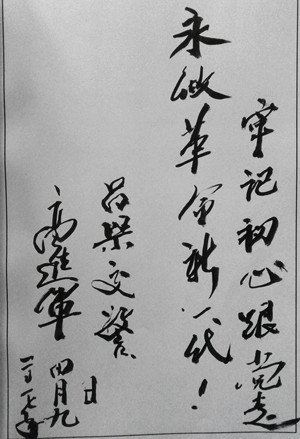 牢记初心跟党走
永做革命新一代！
吕梁交警
高进军
四月九日
二〇一七年